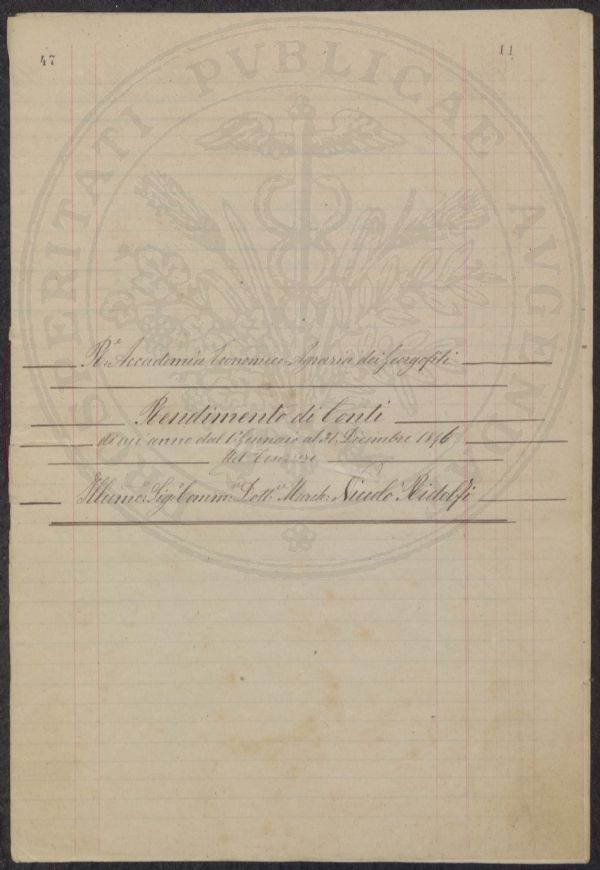 47
11
PROSPERITATI PVBLICAE AVGENDAE
R.ᵃ Accademia Economico-Agraria dei Georgofili
Rendimento di Conti
di un' anno dal 1° Gennaio al 31 Dicembre 1896
del Tesoriere
Illumo: Sig:ʳ Comm:ʳᵉ Dott:ʳᵉ March: Niccolo Ridolfi